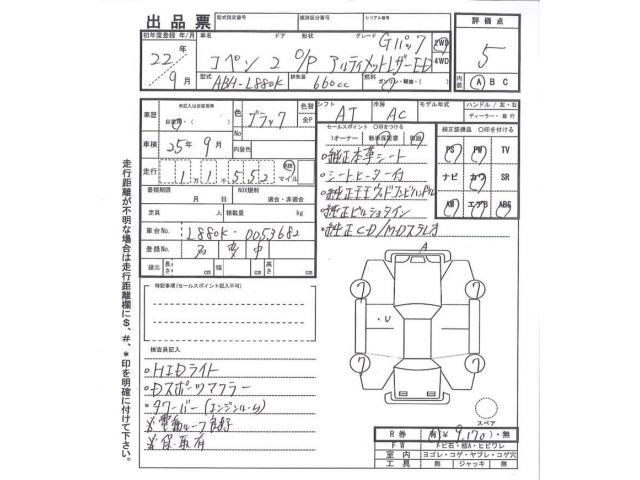 出品票
型式指定番号 類別区分番号 シリアル番号
初年度登録 年/月 車名 ドア 形状 グレード
22年 9月
コペン 2 O/P アルティメットレザーED Gパック
2WD
4WD
評価点
5
内装 A B C
型式 ABA-L880K 排気量 660cc 燃料 ガソリン・軽油・( )
車歴 未記入は自家用車 自家用・( )
色 ブラック
No
色替
全P
内装色
車検 25年 9月
走行 11,552 km マイル
書類期限 月 日 NOX規制 適合・非適合
定員 人 積載量 kg
車台No. L880K-0053682
登録No.
諸元 長さ cm 幅 cm 高さ cm
シフト AT 冷房 AC モデル年式 ハンドル / 左・右
ディーラー・並行
セールスポイント ○印をつける
1オーナー 新車保証書 取説
・純正本革シート
・シートヒーター付
・純正ビルシュタイン
・純正CD/MDステレオ
純正装備品 ○印を付ける
PS PW TV
ナビ カワ SR
AW エアB ABS
特記事項(セールスポイント記入不可)
検査員記入
・HIDライト
・Dスポーツマフラー
・タワーバー(エンジンルーム)
※電動ルーフ良好
※保・取有
走行距離が不明な場合は走行距離欄に$、#、*印を明確に付けて下さい。
A
7 7
・U
7 7
スペア
R券 有(¥9,170)・無
FW トビ石・線A・ヒビワレ
室内 ヨゴレ・コゲ・ヤブレ・コゲ穴
工具 無 ジャッキ 無